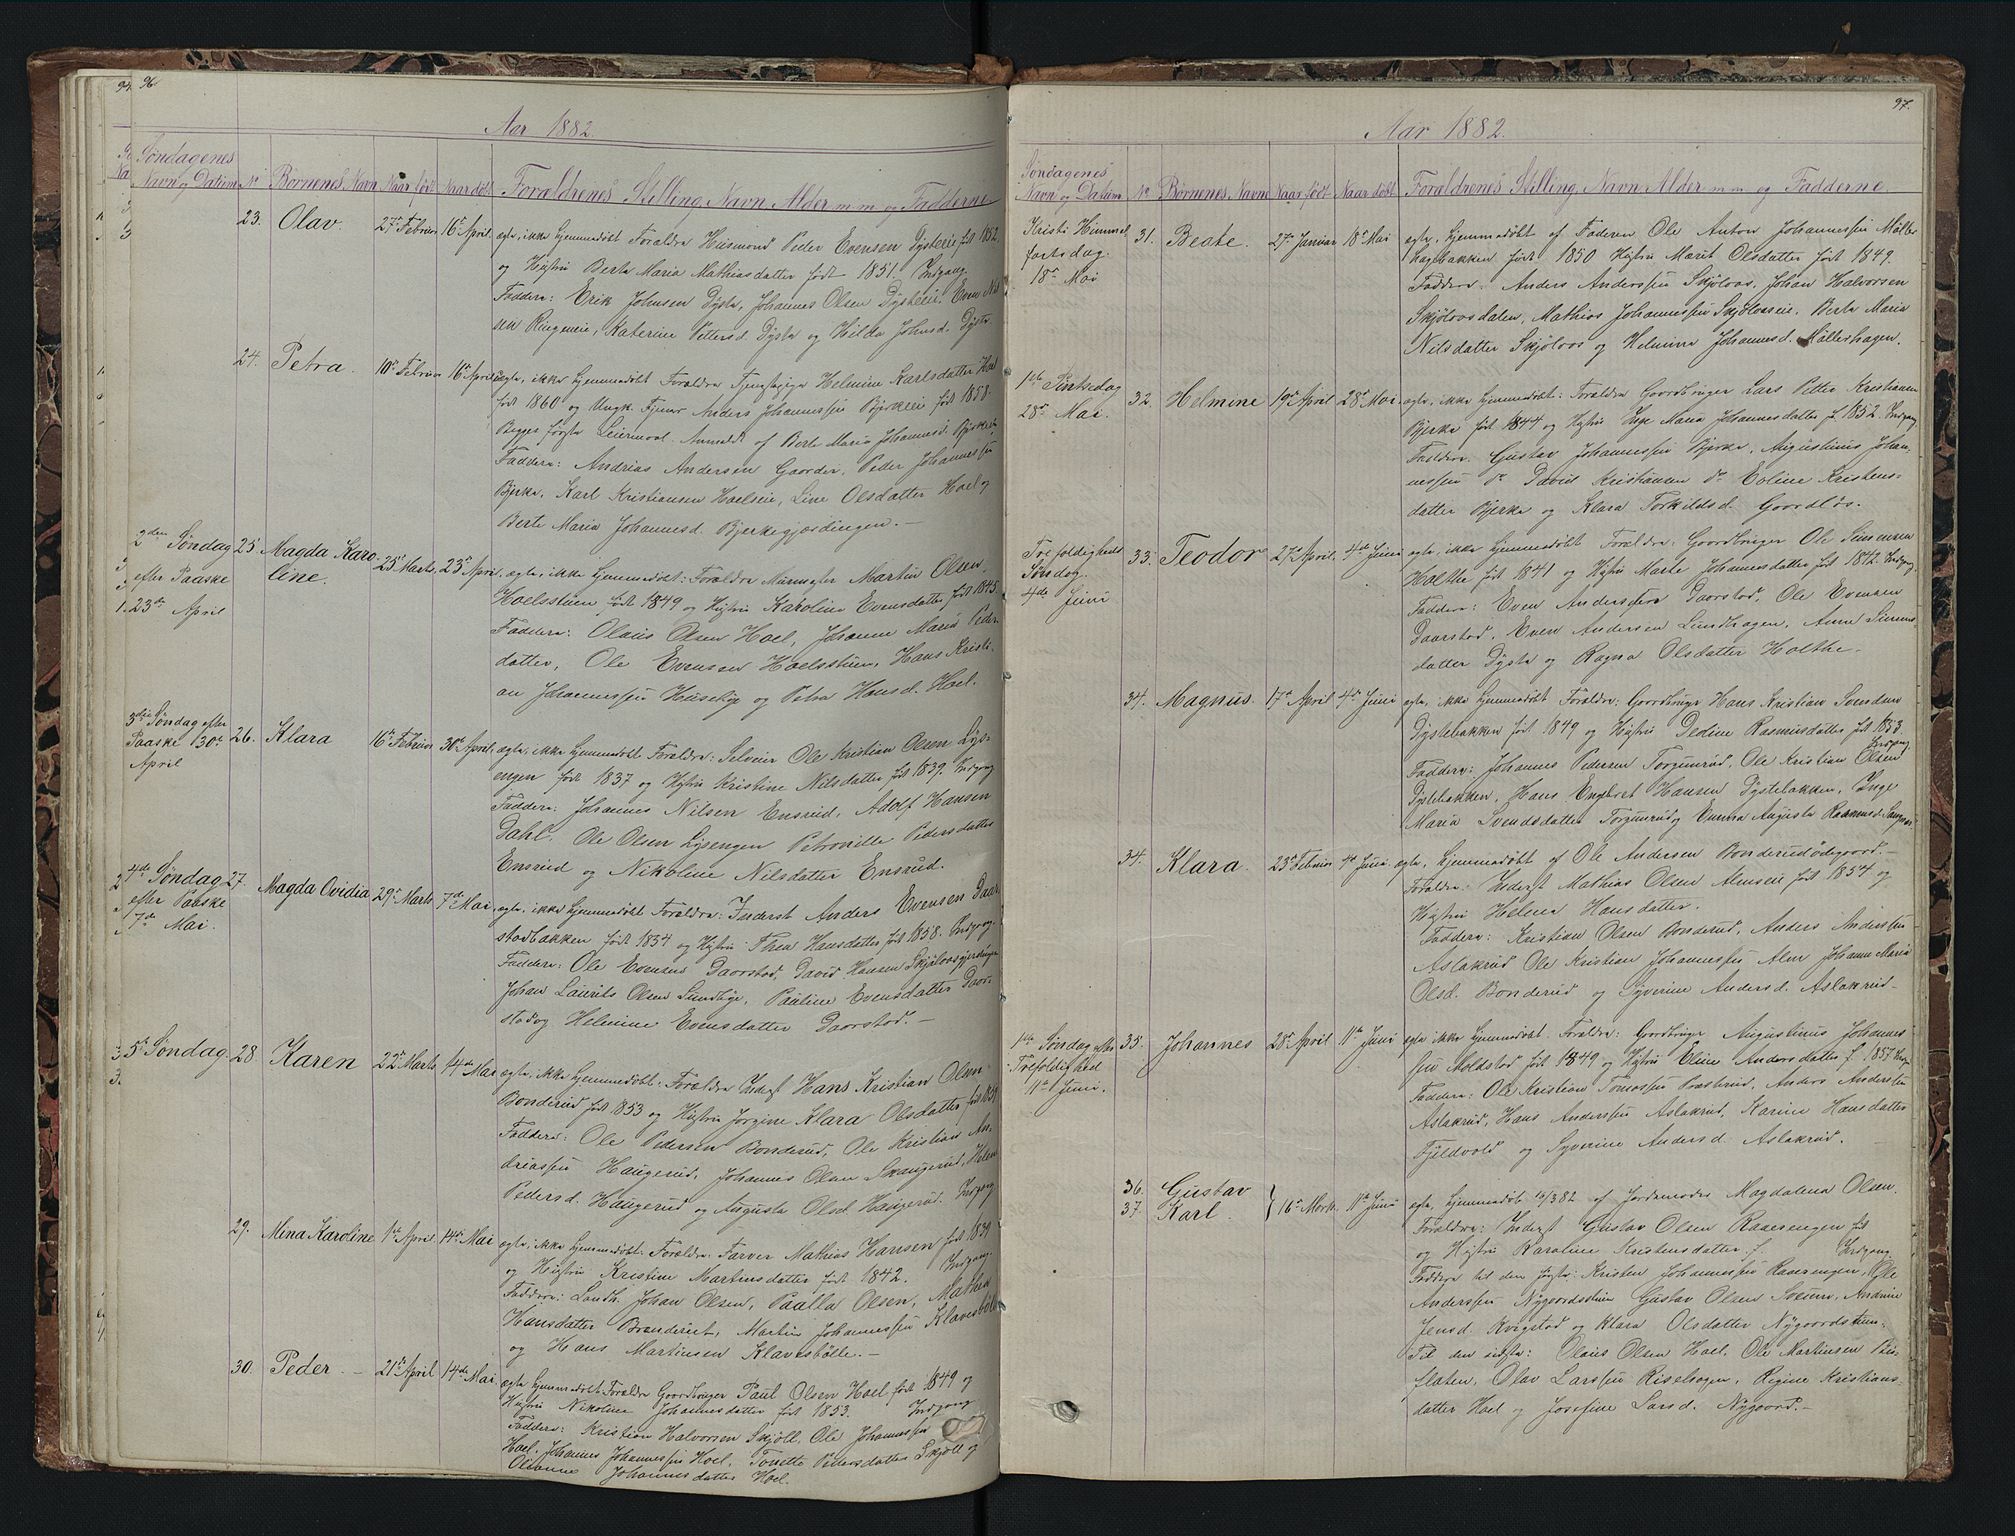 94.
96.
Aar 1882.
Søndagenes
Navn og Datum
No
Børnenes Navn
Naar født
Naar døbt
Forældrenes Stilling, Navn, Alder m. m. og Fadderne
23. Olav. 27de Februar 16de April ægte, ikke hjemmedøbt Forældre Husmand Peder Evensen Dysteeie født 1852
og Hustru Berte Maria Mathiasdatter født 1851. Indgang
Faddere: Erik Johnsen Dyste, Johannes Olsen Dysteeie, Even Nil
sen Ringeneie, Katerine Pettersd. Dyste og Hilda Johnsd. Dyste.
24. Petra. 10de Februar 16de April ægte, ikke hjemmedøbt Forældre Tjenestepige Helmine Karlsdatter Hoel
født 1860 og Ungk. Tjener Anders Johannessen Bjerkeeie født 1858.
Begges første Leiermaal. Anmeldt af Berte Maria Johannesd. Bjerkeeie
Faddere: Andrias Andersen Gaarder, Peder Johannessen
Bjerke, Karl Kristiansen Hoelseie, Line Olsdatter Hoel og
Berte Maria Johannesd. Bjerkegjærdingen. —
2den Søndag
efter Paaske
23de April
25 Magda Karo-
line. 25de Marts. 23de April. ægte, ikke hjemmedøbt: Forældre Murmester Martin Olsen
Hoelsstuen født 1849 og Hustru Karoline Evensdatter født 1845.
Faddere: Olaus Olsen Hoel, Johanne Maria Peders-
datter, Ole Evensen Hoelsstuen, Hans Kristi-
an Johannessen Huseby og Petra Hansd. Hoel.
3die Søndag efter
Paaske 30de
April
26. Klara 16de Februar 30de April. ægte, ikke hjemmedøbt Forældre: Selveier Ole Kristian Olsen Lys-
engen født 1837 og Hustru Kristine Nilsdatter født 1839. Indgang
Faddere: Johannes Nilsen Ensrud, Adolf Hansen
Dahl. Ole Olsen Lysengen Petronille Pedersdatter
Ensrud og Nikoline Nilsdatter Ensrud.
4de Søndag
efter Paaske
7de Mai.
27. Magda Ovidia 29de Marts 7de Mai. ægte, ikke hjemmedøbt Forældre: Inderst Anders Evensen Daar-
stadbakken født 1854 og Hustru Thea Hansdatter født 1858. Indgang.
Faddere: Ole Evensen Daarstad, David Hansen Skjølaasgjerdingen
Johan Laurits Olsen Sundbye, Pauline Evensdatter Daar-
stad og Helmine Evensdatter Daarstad. —
5te Søndag.
28. Karen 22de Marts 14de Mai ægte, ikke hjemmedøbt: Forældre Inderst Hans Kristian Olsen
Bonderud født 1853 og Hustru Jorgine Klara Olsdatter født 1859.
Faddere: Ole Pedersen Bonderud, Ole Kristian An-
driassen Haugerud, Johannes Olsen Svangerud, Helene
Pedersd. Haugerud og Augusta Olsd. Haugerud. Indgang
29. Mina Karoline 1ste April. 14de Mai ægte, ikke hjemmedøbt: Forældre: Farver Mathias Hansen født 1839
og Hustru Kristine Martinsdatter født 1842. Indgang.
Faddere: Landh. Johan Olsen, Paulla Olsen, Mathea
Hansdatter Branderud, Martin Johannessen Klavesbølle
og Hans Martinsen Klavesbølle. —
30. Peder — 21de April 14de Mai. ægte hjemmedøbt Forældre Gaardbruger Paul Olsen Hoel født 1849 og
Hustru Nikoline Johannesdatter født 1853. Indgang
Faddere: Kristian Halvorsen Skjøll, Ole Johannessen
Hoel, Johannes Johannessen Hoel, Tonette Pedersdatter Skjøll og
Oleanne Johannesdatter Hoel.
97.
Aar 1882.
Søndagenes
Navn og Datum
No
Børnenes Navne
Naar født
Naar døbt
Forældrenes Stilling, Navn Alder m m og Fadderne.
Kristi Himmel
fartsdag.
18de Mai
31. Beate. 27de Januar 18de Mai ægte, hjemmedøbt af Faderen Ole Anton Johannessen Møller
hagbakken født 1850 Hustru Marit Olsdatter født 1849.
Faddere: Anders Anderssen Skjølaas, Johan Halvorsen
Skjølaasdalen, Mathias Johannessen Skjølaaseie. Berte Maria
Nilsdatter Skjølaas og Helmine Johannesd. Møllerhagen.
1ste Pintsedag
28de Mai.
32. Helmine 19de April 28de Mai ægte, ikke hjemmedøbt: Forældre Gaardbruger Lars Petter Kristiansen
Bjerke født 1844 og Hustru Inge Maria Johannesdatter f. 1852 Indgang
Faddere: Gustav Johannessen Bjerke, Augustinus Johan-
nessen Do David Kristiansen Do Eoline Kristens-
datter Bjerke og Klara Torkildsd. Gaardløs.
Trefoldigheds
Søndag.
4de Juni
33. Teodor 27de April. 4de Juni ægte, ikke hjemmedøbt Forældre: Gaardbruger Ole Simensen
Holthe født 1841 og Hustru Marte Johannesdatter født 1842. Indgang.
Faddere: Even Andersen Daarstad, Ole Evensen
Daarstad, Even Andersen Lundhagen, Anne Simens-
datter Dyste og Ragna Olsdatter Holthe.
34. Magnus. 17de April 4de Juni ægte, ikke hjemmedøbt Forældre: Gaardbruger Hans Kristian Svendsen
Dystebakken født 1849 og Hustru Dedine Rasmusdatter født 1853.
Indgang
Faddere: Johannes Pedersen Torgunrud, Ole Kristian Olsen
Dystebakken, Hans Engebret Hansen Dystebakken, Inge
Maria Svendsdatter Torgunrud og Emma Augusta Rasmusd.
34. Klara. 23de Februar 4de Juni. ægte, hjemmedøbt af Ole Andersen Bonderudødegaard. —
Forældre: Inderst Mathias Olsen Almseie født 1854 og
Hustru Helene Hansdatter.
Faddere: Kristian Olsen Bonderud, Anders Anderssen
Aslakrud Ole Kristian Johannessen Alm Johanne Maria
Olsd. Bonderud og Syverine Andersd. Aslakrud-
1ste Søndag efter
Trefoldighed
11te Juni.
35. Johannes 28de April 11te Juni ægte ikke hjemmedøbt. Forældre: Gaardbruger Augustinus Johannes
sen Aoldstad født 1849 og Hustru Eline Andersdatter f. 1857
Faddere: Ole Kristian Tomassen Præsterud, Anders Anderssen
Aslakrud, Hans Anderssen Aslakrud, Karine Hansdatter
Fjeldvold og Syverine Andersd. Aslakrud.
36. Gustav
37. Karl. } 16de Marts. 11te Juni ægte, hjemmedøbt 16/3 82 af Jordemoder Magdalena Olsen.
Forældre: Inderst Gustav Olsen Raaerengen født
og Hustru Karoline Kristensdatter f. Indgang.
Faddere til den første: Kristen Johannessen Raaerengen, Ole
Anderssen Nygaardsstuen Gustav Olsen Sveum, Andrine
Jensd. Kvigstad og Klara Olsdatter Nygaardstuen-
Til den sidste: Olaus Olsen Hoel, Ole Martinsen Bis-
flaten, Olav Larssen Riselhagen, Regine Kristians-
datter Hoel og Josefine Larsd. Nygaard. —